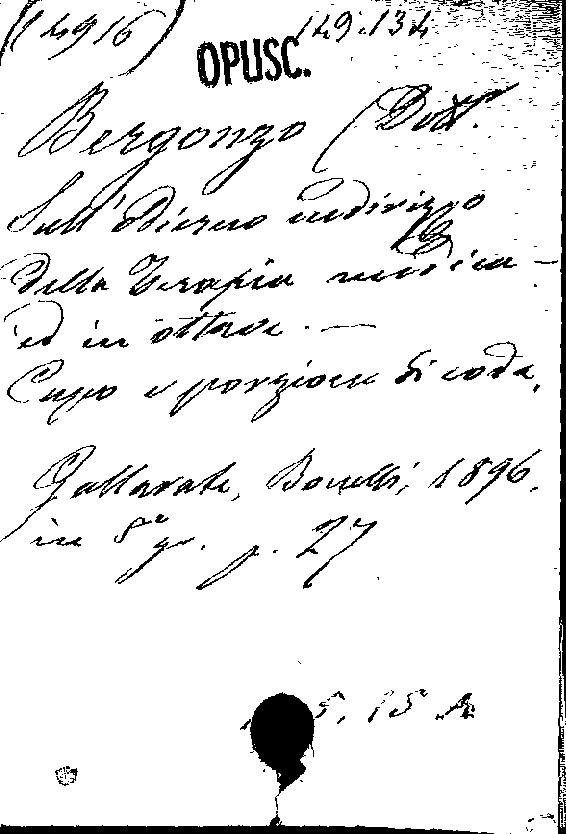 (14916) 149.134
OPUSC.
Bergonzo (Dott.
Sull'odierno indirizzo
della Terapia medica -
ed in ottave. —
Capo e porzione di coda.
Gallarate, Bonelli, 1896.
in 8° gr. p. 27
5. 15 A